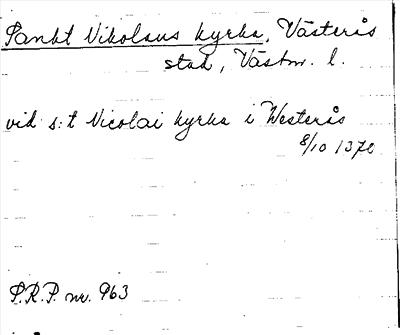 Sankt Nikolaus kyrka, Västerås
stad, Västm. l.
vid s:t Nicolai kyrka i Westerås
8/10 1370
S.R.P. nr. 963